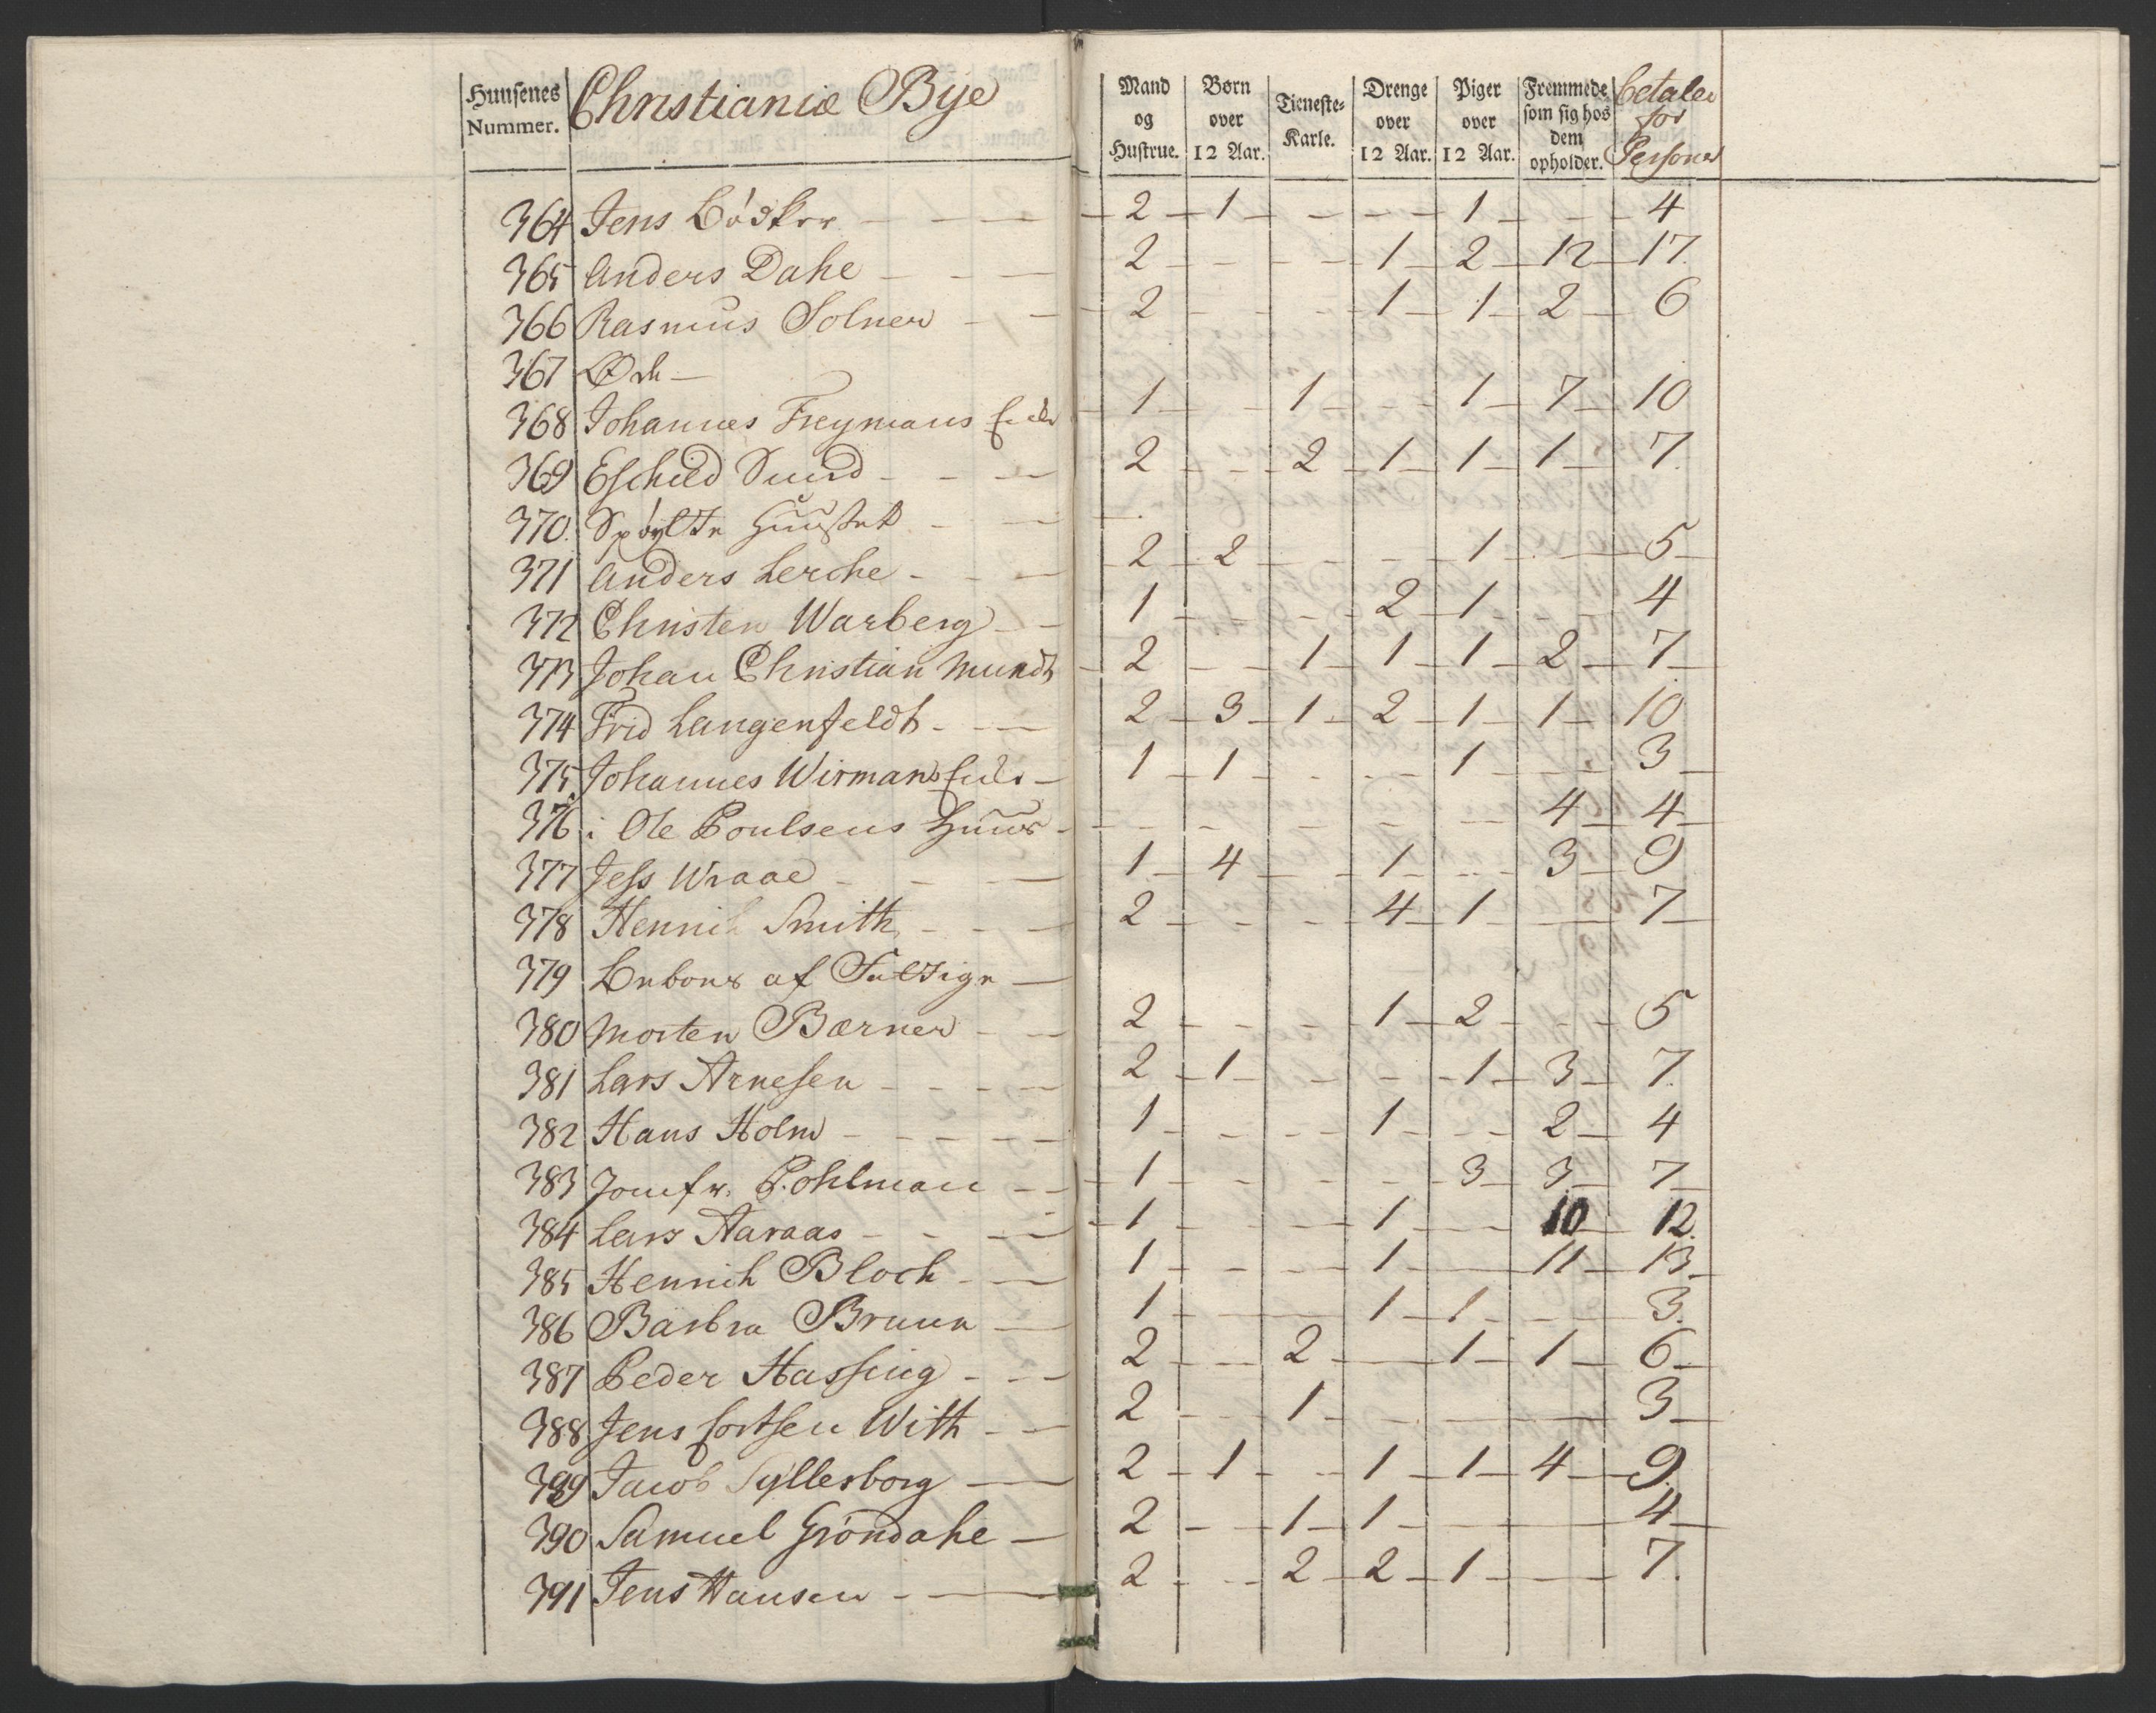 Huusenes Nummer. Christianiæ Bye Mand og Hustrue. Børn over 12 Aar. Tieneste-Karle. Drenge over 12 Aar. Piger over 12 Aar. Fremmede som sig hos dem opholder. betaler for Persone
364 Jens Bødker - - - 2 - 1 - - - - 1 - - - 4
365 Anders Dahe - - - 2 - - - - 1 - 2 - 12 - 17.
366 Rasmus Solner - - 2 - - - - 1 - 1 - 2 - 6
367 Øde -
368 Johannes Freymans Enke 1 - - 1 - - - 1 - 7 - 10
369 Eschild Sund - - - 2 - - 2 - 1 - 1 - 1 - 7.
370. Spøylte Huuset - -
371 Anders Lerche - - - 2 - 2 - - - - 1 - - 5 -
372 Christen Warberg - - 1 - - - - 2 - 1 - - 4
373 Johan Christian Mundt - 2 - - 1 - 1 - 1 - 2 - 7 -
374 Frid Langenfeldt - - - 2 - 3 - 1 - 2 - 1 - 1 - 10
375. Johannes Wirmans Enke - 1 - 1 - - - - 1 - - - 3 -
376 i Ole Poulsens Huus - - - - - - - 4 - 4 -
377 Jess Wraae - - - 1 - 4 - - 1 - - - 3 - 9
378 Hennich Smith - - - 2 - - - - 4 - 1 - - 7 -
379 Beboes af Fattige -
380 Morten Bærner - - 2 - - - - 1 - 2 - - - 5
381 Lars Arnesen - - - - 2 - 1 - - - - 1 - 3 - 7.
382 Hans Holm - - - - - 1 - - - - 1 - - - 2 - 4
383 Jomfr. Pohlman - - - 1 - - - - - - 3 - 3 - 7 -
384 Lars Aaraas - - - - 1 - - - - 1 - - - 10 12.
385 Hennich Bloch - - 1 - - - - 1 - - 11 - 13 -
386 Barbra Bruun - 1 - - - 1 - 1 - - - 3.
387 Peder Hassing - - - 2 - - - 2 - - 1 - 1 - 6 -
388 Jens Cortsen With - - 2 - - 1 - - - - 3 -
389 Jacob Syllesborg - 2 - 1 - - - 1 - 1 - 4 - 9.
390 Samuel Grøndahe - 2 - - 1 - 1 - - - 4 -
391 Jens Hansen - - 2 - - - 2 - 2 - 1 - - - 7.